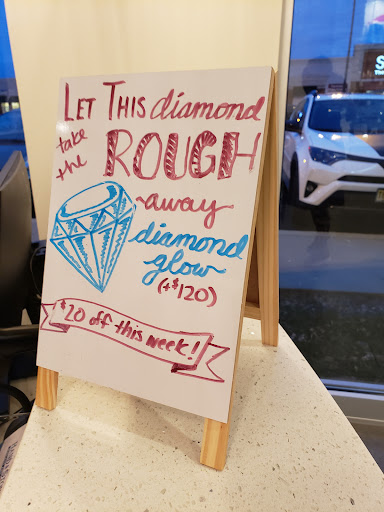 LET THIS diamond
take the ROUGH
away
diamond
glow
(+$120)
$20 off this week!
S